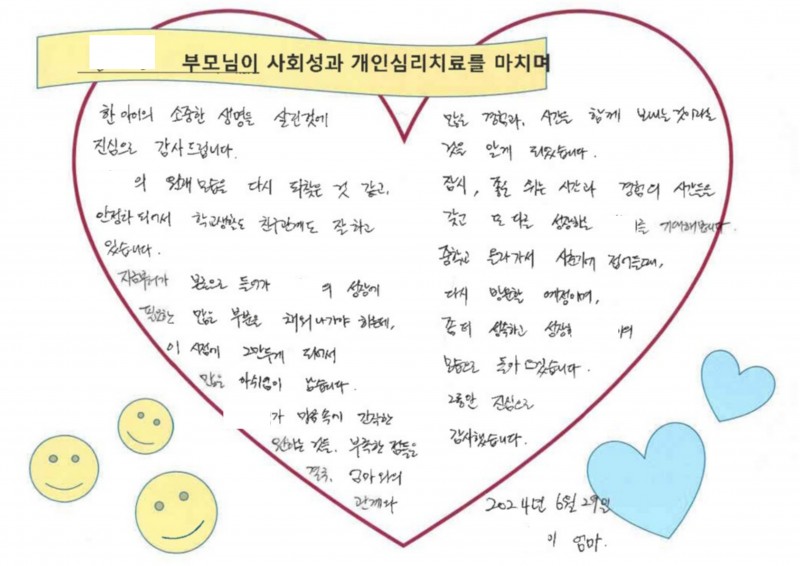 부모님이 사회성과 개인심리치료를 마치며
한 아이의 소중한 생명을 살린것에
진심으로 감사드립니다.
의 원래 모습을 다시 되찾은 것 같고,
안정화 되어서 학교생활도 친구관계도 잘 하고
있습니다.
지금부터가 본론으로 들어가 의 성장에
필요한 많은 부분을 채워나가야 하는데,
이 시점에 그만두게 되어서
많은 아쉬움이 남습니다.
가 마음속에 간직한
원하는 것들, 부족한 점들을
결국, 엄마와의
관계와
많은 경험과, 시간을 함께 보내는 것이라는
것을 알게 되었습니다.
잠시, 좀 쉬는 시간과 경험의 시간들을
갖고 또 다른 성장하는 를 기대해봅니다.
중학교 올라가서 사춘기에 접어들때,
다시 방문할 예정이며,
좀 더 성숙하고 성장한
모습으로 돌아 오겠습니다.
그동안 진심으로
감사했습니다.
2024년 6월 29일
이 엄마.